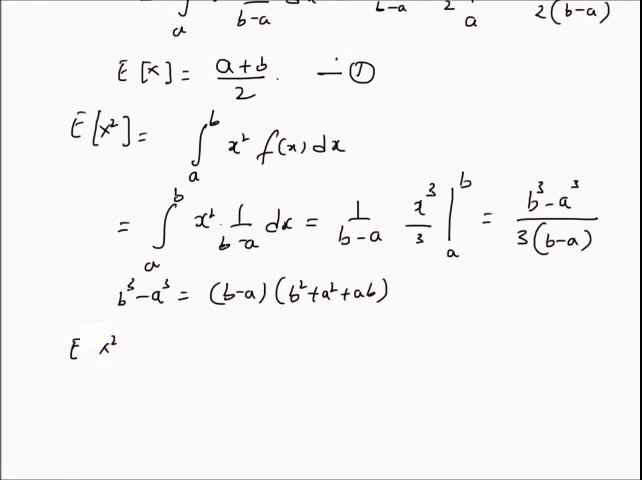 ∫ₐ b-a b-a 2 a 2(b-a)
E[x] = (a+b)/2 . — ①
E[x²] = ∫ₐᵇ x² f(x) dx
= ∫ₐᵇ x² · 1/(b-a) dx = 1/(b-a) x³/3 |ₐᵇ = (b³-a³)/(3(b-a))
b³-a³ = (b-a)(b²+a²+ab)
E x²